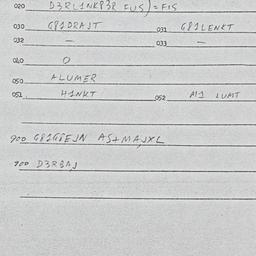 020 D3RLINKP3R FUS) = FIS
030 GP1DRAJT 031 GP1LENKT
032 — 033 —
040 O
050 ALUMER
051 H1NKT 052 AI1 LUMT
900 ASAMAJXL
700 D3R3AJ